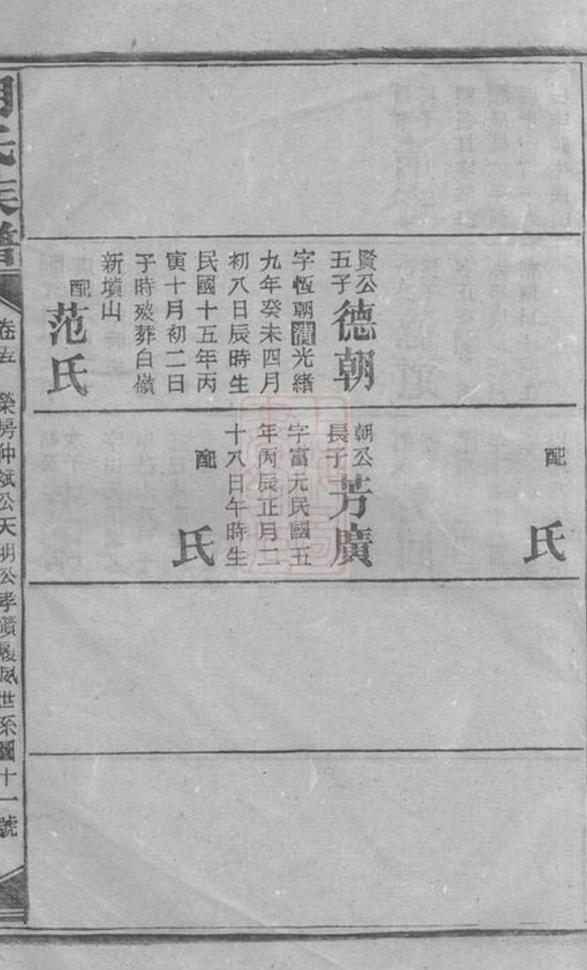 賢公
五子
德朝
字恆朝清光緒
九年癸未四月
初八日辰時生
民國十五年丙
寅十月初二日
子時歿葬白嶺
新墳山
配
范氏
配
氏
朝公
長子
芳廣
字富元民國五
年丙辰正月二
十八日午時生
配
氏
氏族譜
卷
榮房仲斌公天明公孝
世系圖十一號